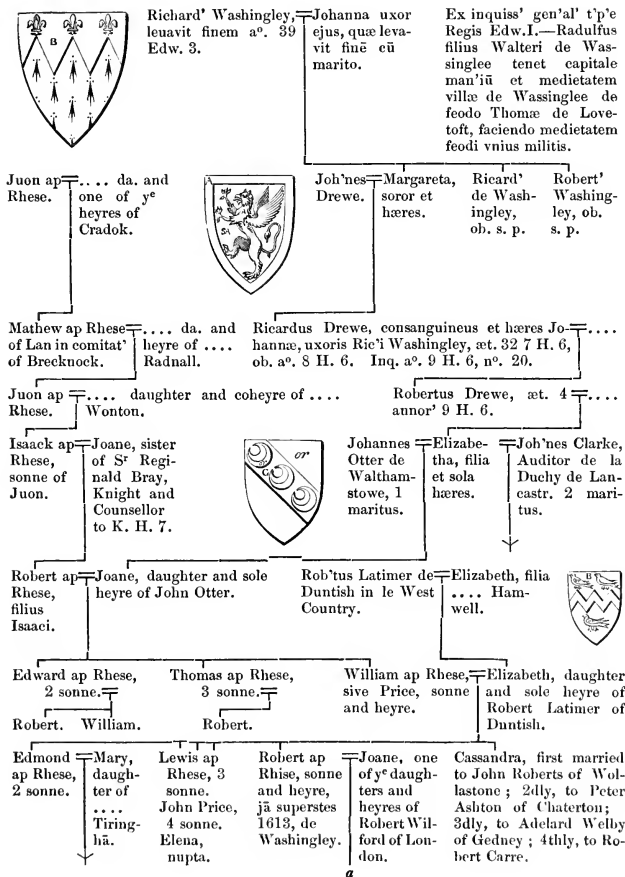 Richard' Washingley,
leuavit finem aº. 39
Edw. 3.
Johanna uxor
ejus, quæ leva-
vit finē cū
marito.
Ex inquiss' gen'al' t'p'e
Regis Edw. I.—Radulfus
filius Walteri de Was-
singlee tenet capitale
man'iū et medietatem
villæ de Wassinglee de
feodo Thomæ de Love-
toft, faciendo medietatem
feodi vnius militis.
B
Juon ap
Rhese.
.... da. and
one of yᵉ
heyres of
Cradok.
A
SA
Joh'nes
Drewe.
Margareta,
soror et
hæres.
Ricard'
de Wash-
ingley,
ob. s. p.
Robert'
Washing-
ley, ob.
s. p.
Mathew ap Rhese
of Lan in comitat'
of Brecknock.
.... da. and
heyre of ....
Radnall.
Ricardus Drewe, consanguineus et hæres Jo-
hannæ, uxoris Ric'i Washingley, æt. 32 7 H. 6,
ob. aº. 8 H. 6. Inq. aº. 9 H. 6, nº. 20.
....
Juon ap
Rhese.
.... daughter and coheyre of ....
Wonton.
Robertus Drewe, æt. 4
annor' 9 H. 6.
....
Isaack ap
Rhese,
sonne of
Juon.
Joane, sister
of Sʳ Regi-
nald Bray,
Knight and
Counsellor
to K. H. 7.
or
G
Johannes
Otter de
Waltham-
stowe, 1
maritus.
Elizabe-
tha, filia
et sola
hæres.
Joh'nes Clarke,
Auditor de la
Duchy de Lan-
castr. 2 mari-
tus.
Robert ap
Rhese,
filius
Isaaci.
Joane, daughter and sole
heyre of John Otter.
Rob'tus Latimer de
Duntish in le West
Country.
Elizabeth, filia
.... Ham-
well.
B
Edward ap Rhese,
2 sonne.
Thomas ap Rhese,
3 sonne.
William ap Rhese,
sive Price, sonne
and heyre.
Elizabeth, daughter
and sole heyre of
Robert Latimer of
Duntish.
Robert. William.
Robert.
Edmond
ap Rhese,
2 sonne.
Mary,
daugh-
ter of
....
Tiring-
hā.
Lewis ap
Rhese, 3
sonne.
John Price,
4 sonne.
Elena,
nupta.
Robert ap
Rhise, sonne
and heyre,
jā superstes
1613, de
Washingley.
Joane, one
of yᵉ daugh-
ters and
heyres of
Robert Wil-
ford of Lon-
don.
Cassandra, first married
to John Roberts of Wol-
lastone ; 2dly, to Peter
Ashton of Chaterton;
3dly, to Adelard Welby
of Gedney ; 4thly, to Ro-
bert Carre.
a